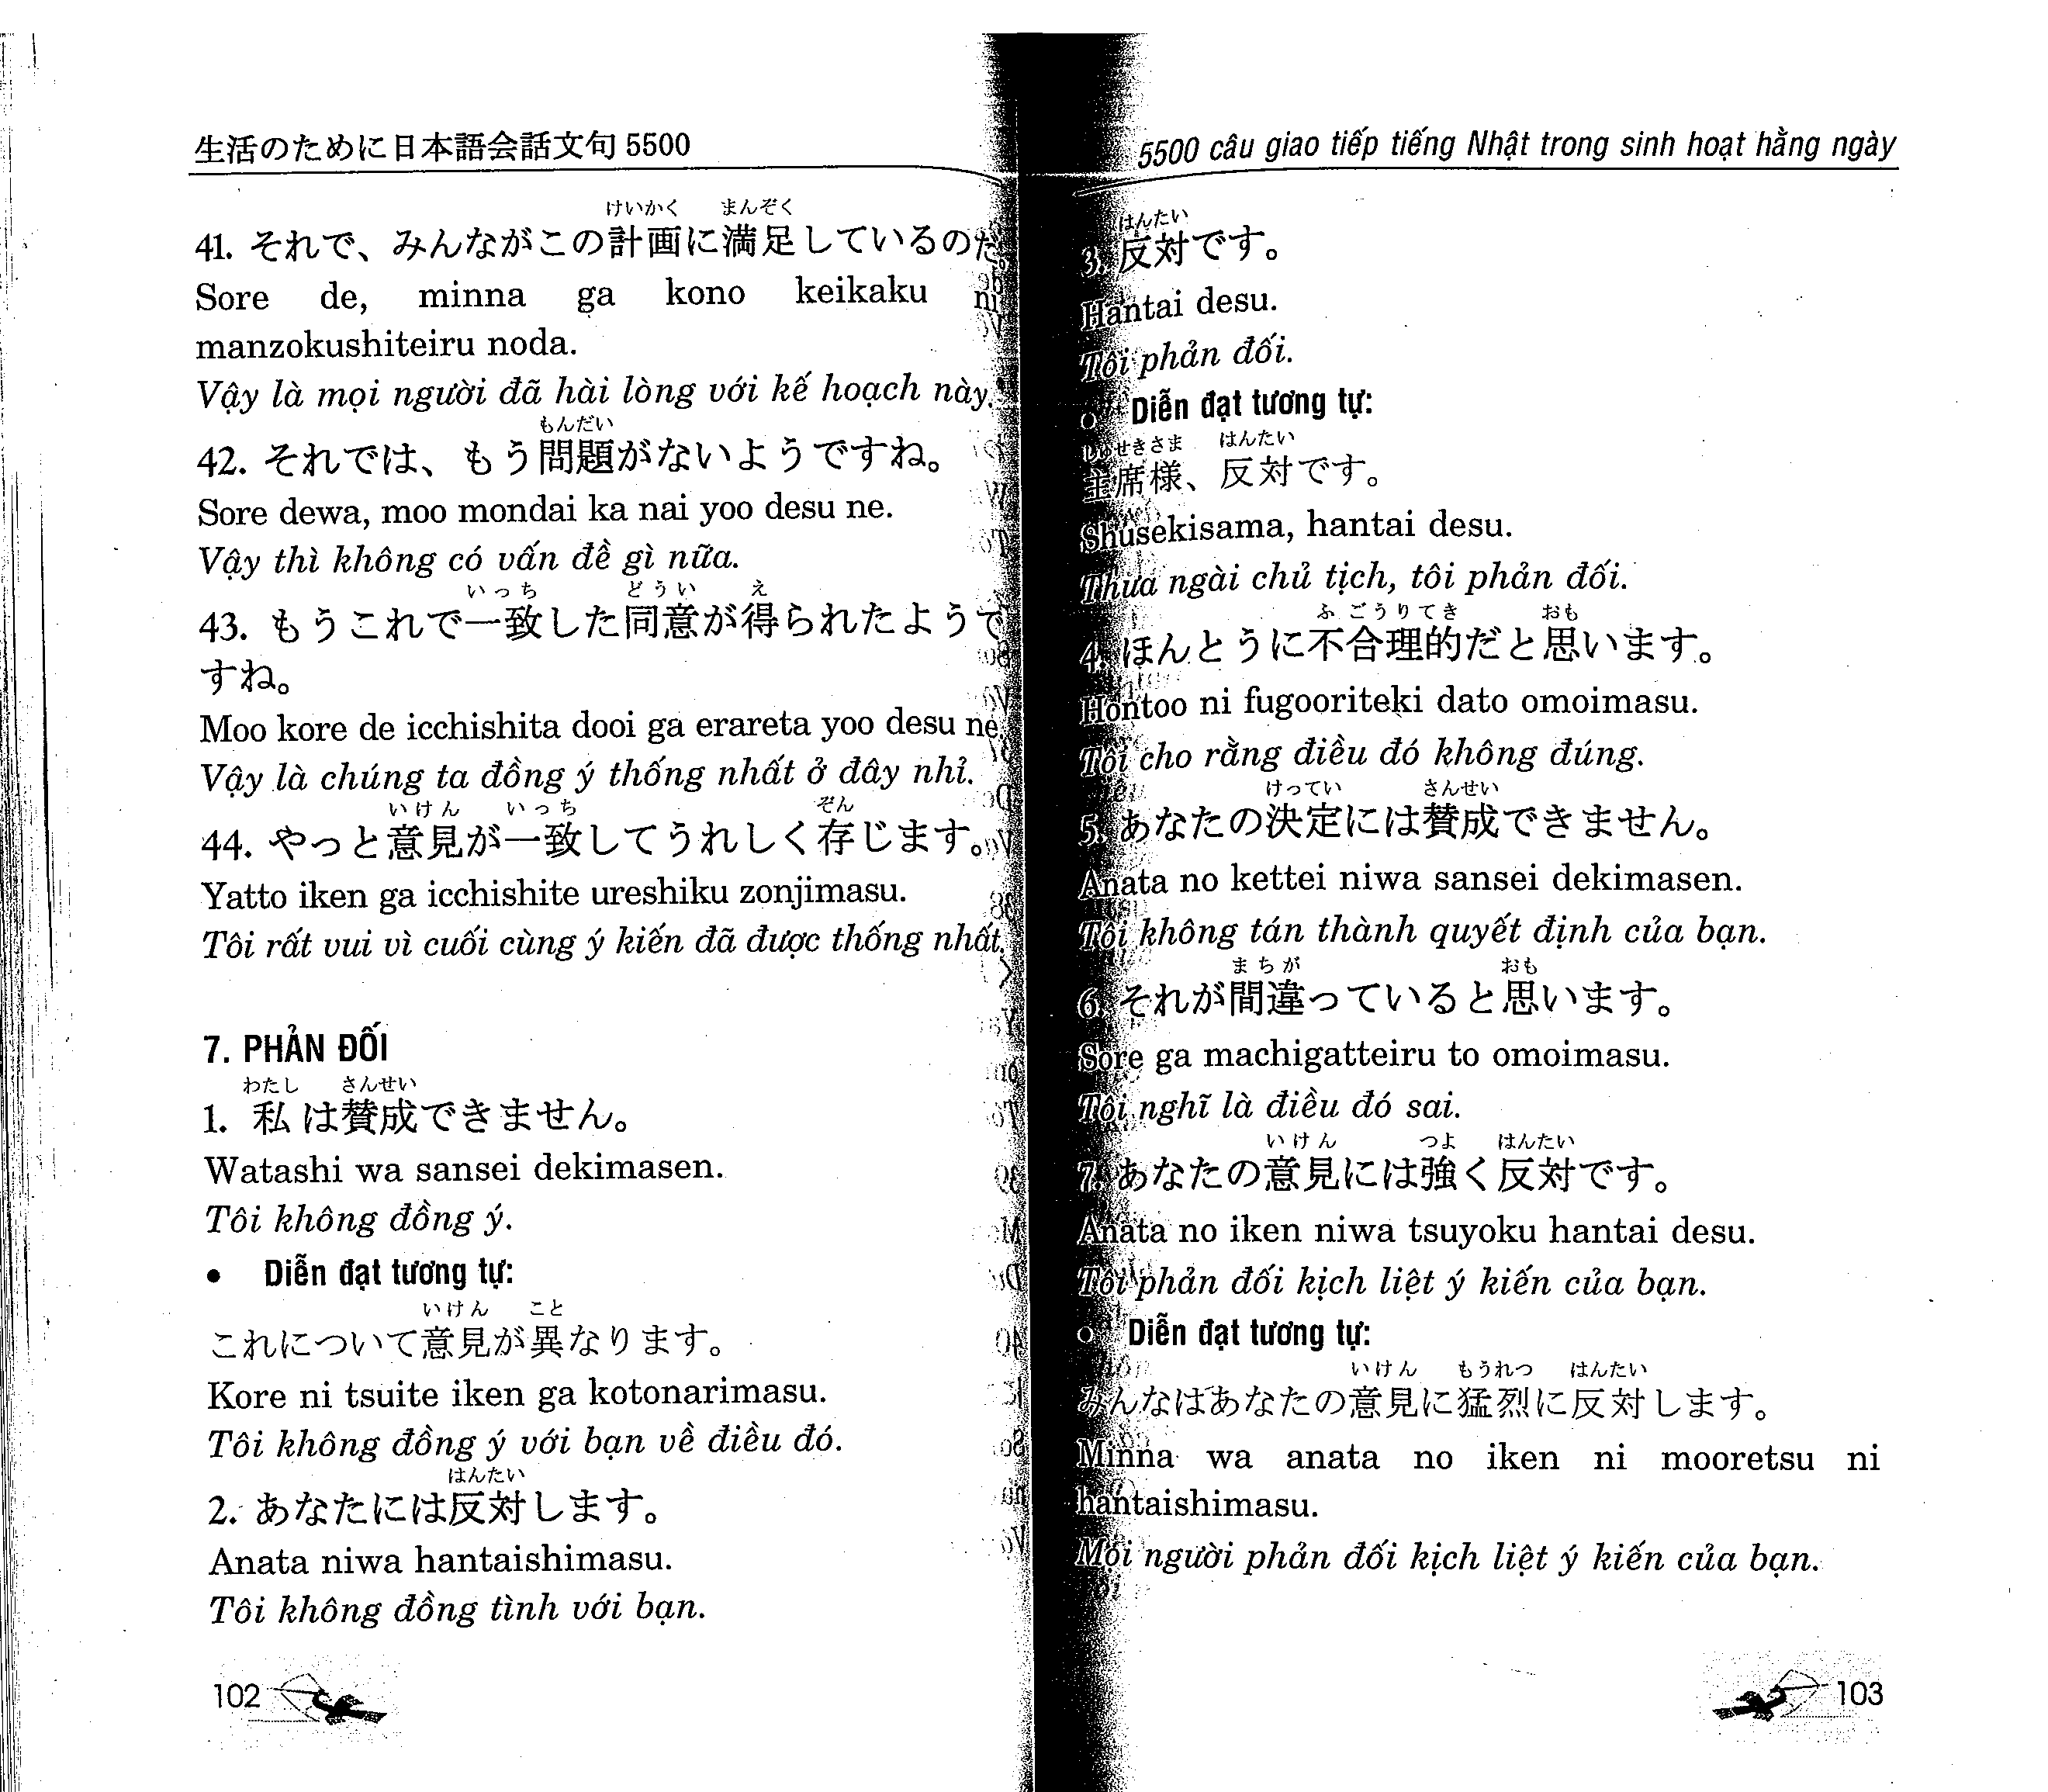 生活のために日本語会話文句 5500
けいかく まんぞく
41. それで、みんながこの計画に満足しているのだ。
Sore de, minna ga kono keikaku ni
manzokushiteiru noda.
Vậy là mọi người đã hài lòng với kế hoạch này.
もんだい
42. それでは、もう問題がないようですね。
Sore dewa, moo mondai ka nai yoo desu ne.
Vậy thì không có vấn đề gì nữa.
いっち どうい え
43. もうこれで一致した同意が得られたようで
すね。
Moo kore de icchishita dooi ga erareta yoo desu ne.
Vậy là chúng ta đồng ý thống nhất ở đây nhỉ.
いけん いっち ぞん
44. やっと意見が一致してうれしく存じます。
Yatto iken ga icchishite ureshiku zonjimasu.
Tôi rất vui vì cuối cùng ý kiến đã được thống nhất.
7. PHẢN ĐỐI
わたし さんせい
1. 私は賛成できません。
Watashi wa sansei dekimasen.
Tôi không đồng ý.
• Diễn đạt tương tự:
いけん こと
これについて意見が異なります。
Kore ni tsuite iken ga kotonarimasu.
Tôi không đồng ý với bạn về điều đó.
はんたい
2. あなたには反対します。
Anata niwa hantaishimasu.
Tôi không đồng tình với bạn.
102
5500 câu giao tiếp tiếng Nhật trong sinh hoạt hằng ngày
はんたい
3. 反対です。
Hantai desu.
Tôi phản đối.
• Diễn đạt tương tự:
しゅせきさま はんたい
主席様、反対です。
Shusekisama, hantai desu.
Thưa ngài chủ tịch, tôi phản đối.
ふごうりてき おも
4. ほんとうに不合理的だと思います。
Hontoo ni fugooriteki dato omoimasu.
Tôi cho rằng điều đó không đúng.
けってい さんせい
5. あなたの決定には賛成できません。
Anata no kettei niwa sansei dekimasen.
Tôi không tán thành quyết định của bạn.
まちが おも
6. それが間違っていると思います。
Sore ga machigatteiru to omoimasu.
Tôi nghĩ là điều đó sai.
いけん つよ はんたい
7. あなたの意見には強く反対です。
Anata no iken niwa tsuyoku hantai desu.
Tôi phản đối kịch liệt ý kiến của bạn.
• Diễn đạt tương tự:
いけん もうれつ はんたい
みんなはあなたの意見に猛烈に反対します。
Minna wa anata no iken ni mooretsu ni
hantaishimasu.
Mọi người phản đối kịch liệt ý kiến của bạn.
103